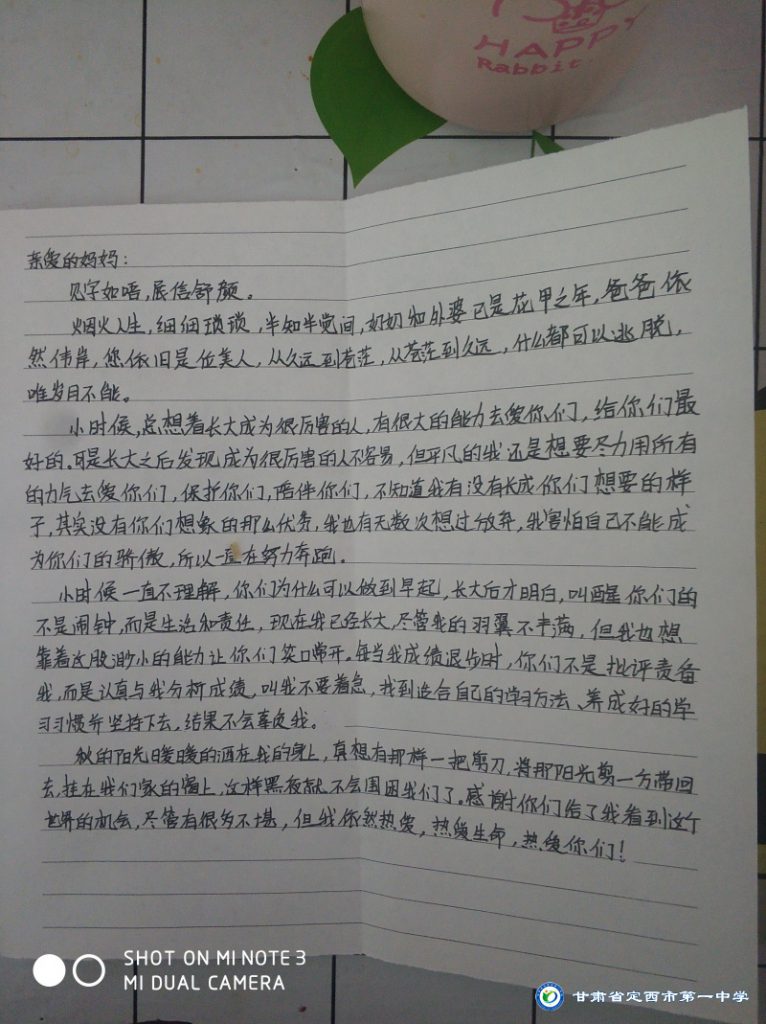 HAPPY
Rabbit
亲爱的妈妈：
见字如唔，展信舒颜。
烟火人生，细细琐琐，半知半觉间，奶奶和外婆已是花甲之年，爸爸依
然伟岸，您依旧是位美人，从久远到苍茫，从苍茫到久远，什么都可以逃脱，
唯岁月不能。
小时候，总想着长大成为很厉害的人，有很大的能力去爱你们，给你们最
好的。可是长大之后发现成为很厉害的人不容易，但平凡的我还是想要尽力用所有
的力气去爱你们，保护你们，陪伴你们，不知道我有没有长成你们想要的样
子，其实没有你们想象的那么优秀，我也有无数次想过放弃，我害怕自己不能成
为你们的骄傲，所以一直在努力奔跑。
小时候一直不理解，你们为什么可以做到早起，长大后才明白，叫醒你们的
不是闹钟，而是生活和责任，现在我已经长大，尽管我的羽翼不丰满，但我也想
靠着这股渺小的能力让你们笑口常开。每当我成绩退步时，你们不是批评责备
我，而是认真与我分析成绩，叫我不要着急，找到适合自己的学习方法、养成好的学
习习惯并坚持下去，结果不会辜负我。
秋的阳光暖暖的洒在我的身上，真想有那样一把剪刀，将那阳光剪一方带回
去，挂在我们家的窗上，这样黑夜就不会围困我们了。感谢你们给了我看到这个
世界的机会，尽管有很多不堪，但我依然热爱，热爱生命，热爱你们！
SHOT ON MI NOTE 3
MI DUAL CAMERA
甘肃省定西市第一中学